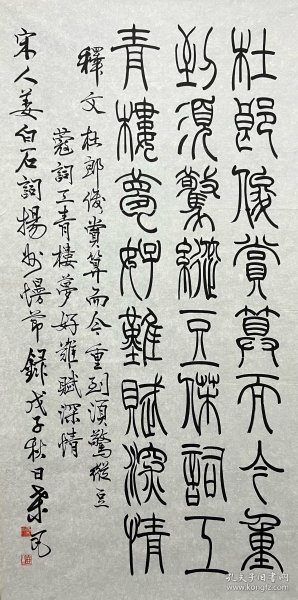 杜郎俊賞算而今重
到須驚縱豆蔻詞工
青樓夢好難賦深情
釋文 杜郎俊賞算而今重到須驚縱豆
蔻詞工青樓夢好難賦深情
宋人姜白石詞揚州慢節錄戊子秋日